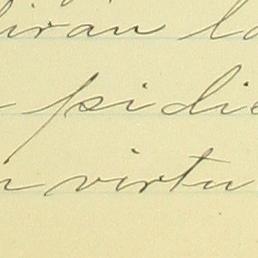 irán la
pidie
virtu